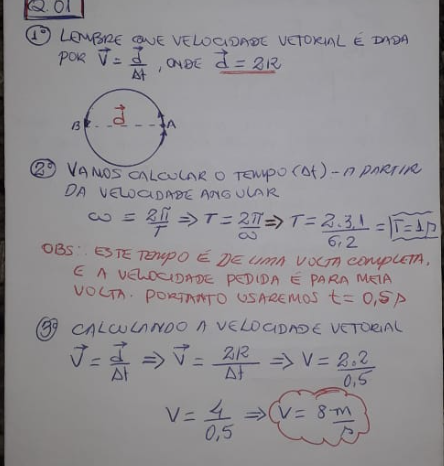 Q.01
1º) LEMBRE QUE VELOCIDADE VETORIAL É DADA
POR V⃗ = d⃗/Δt, ONDE d⃗ = 2R
B d⃗ A
2º) VAMOS CALCULAR O TEMPO (Δt) - A PARTIR
DA VELOCIDADE ANGULAR
ω = 2π/T ⇒ T = 2π/ω ⇒ T = 2.3,1/6,2 = T = 1s
OBS:. ESTE TEMPO É DE UMA VOLTA COMPLETA,
E A VELOCIDADE PEDIDA É PARA MEIA
VOLTA. PORTANTO USAREMOS t = 0,5s
3º) CALCULANDO A VELOCIDADE VETORIAL
V⃗ = d⃗/Δt ⇒ V⃗ = 2R/Δt ⇒ V = 2.2/0,5
V = 4/0,5 ⇒ V = 8 m/s